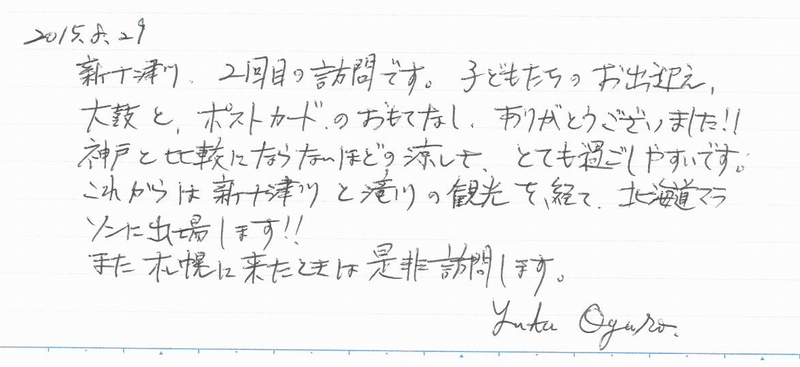 2015.8.29
新十津川、2回目の訪問です。子どもたちのお出迎え、
太鼓と、ポストカードのおもてなし、ありがとうございました!!
神戸と比較にならないほどの涼しさ、とても過ごしやすいです。
これからは新十津川と滝川の観光を経て、北海道マラ
ソンに出場します!!
また札幌に来たときは是非訪問します。
Yuta Oguro.